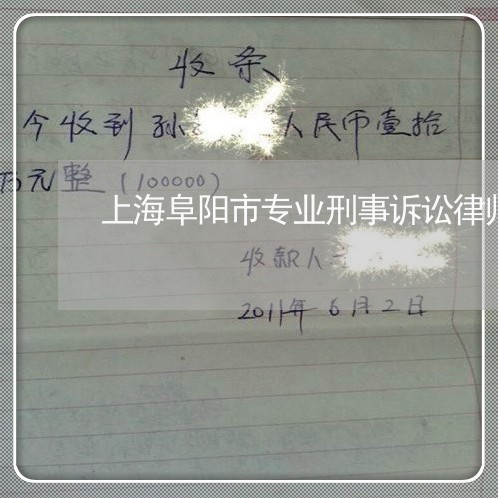 收条
今收到孙 人民币壹拾
万元整（100000）
上海阜阳市专业刑事诉讼律师
收款人
2011年6月2日